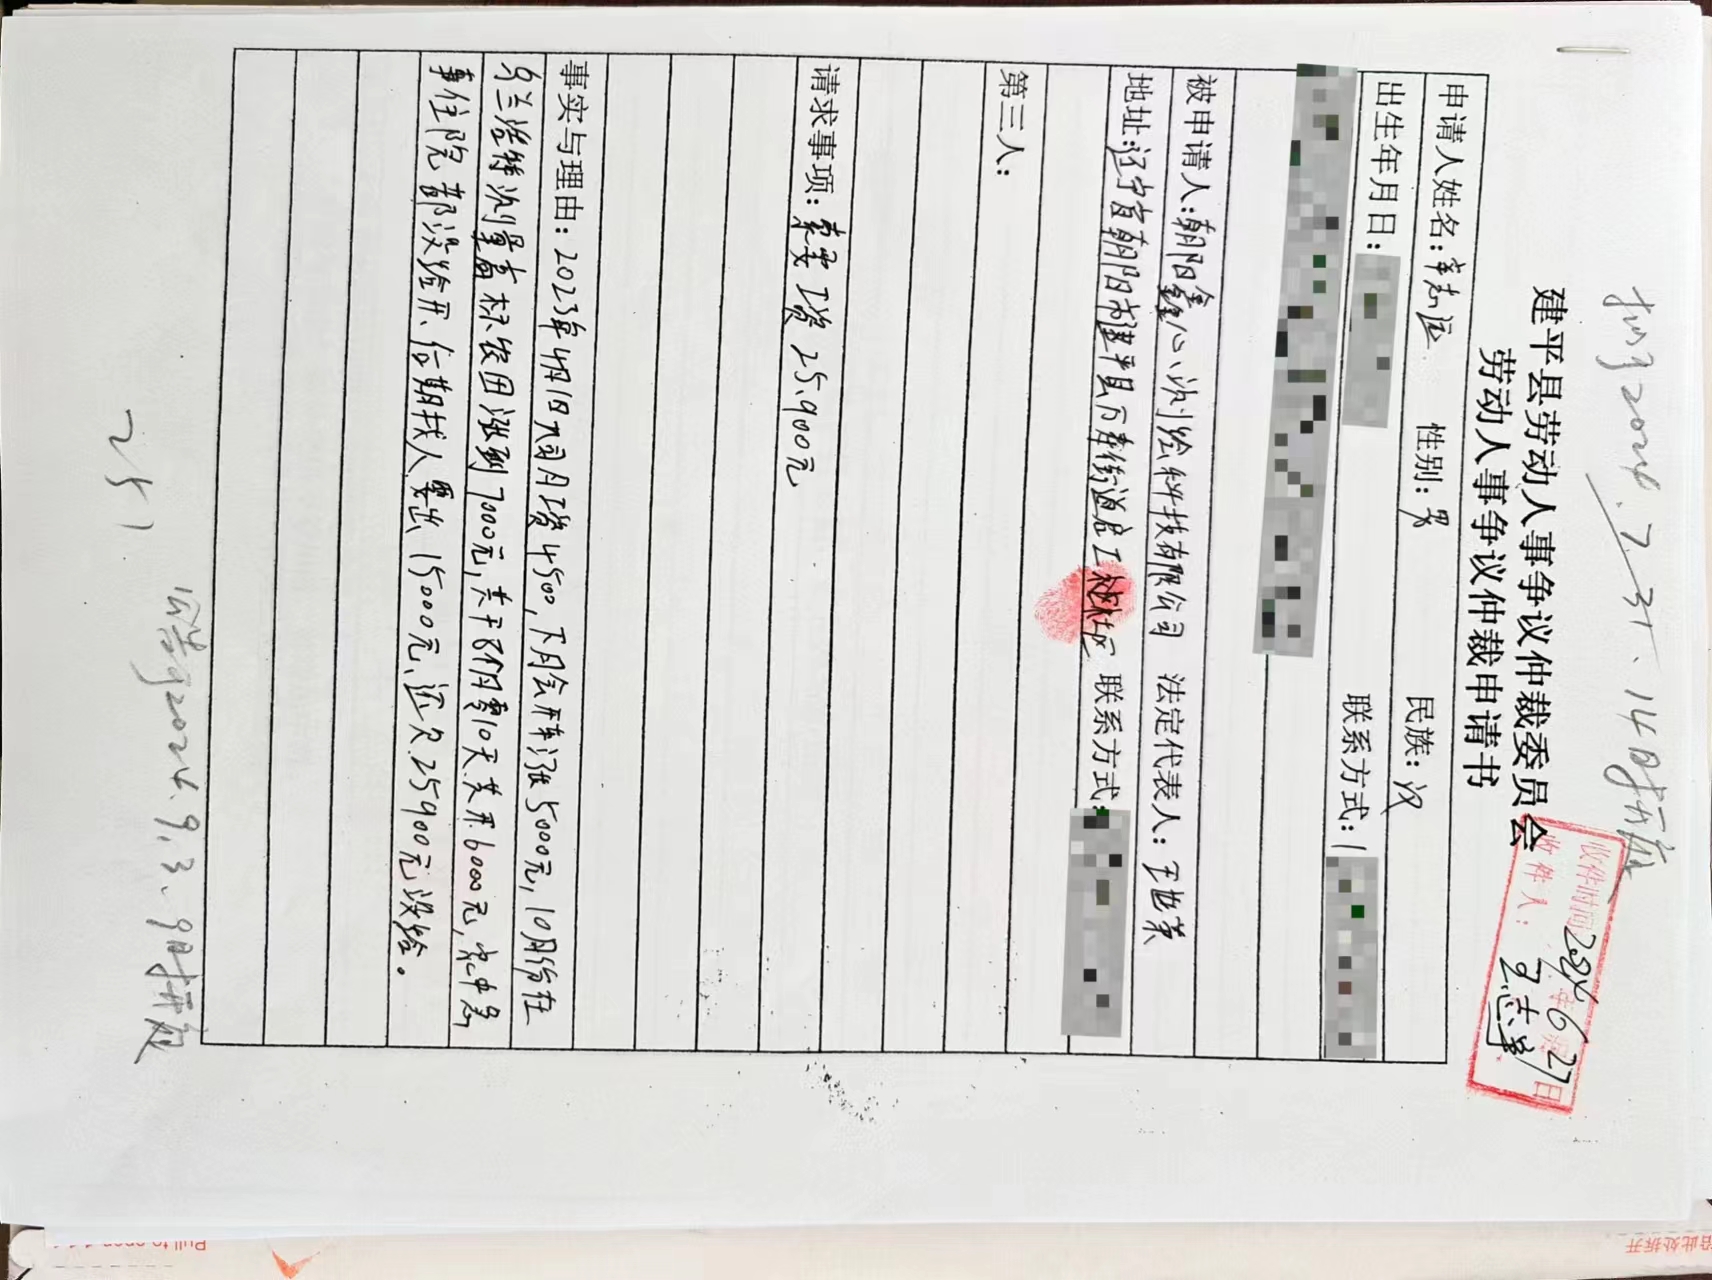 扣字2024.7.31.14时开庭
建平县劳动人事争议仲裁委员会
劳动人事争议仲裁申请书
收件时间2024年6月27日
收件人：
申请人姓名：李志远 性别：男 民族：汉
出生年月日： 联系方式：1
被申请人：朝阳鑫心测绘科技有限公司 法定代表人：王世英
地址：辽宁省朝阳市建平县万寿街道启工 联系方式：
第三人：
请求事项：索要工资25.900元
事实与理由：2023年4月1日入司月工资4500，下月会开车涨5000元，10月份在
乌兰浩特测量高标农田涨到7000元，共干8个月零10天.共开6000元，家中急
事住院都没给开、后期找人要出15000元、还欠25900元没给。
公告字2024.9.3.9时开庭
251.
Pull to open
沿此处拆开